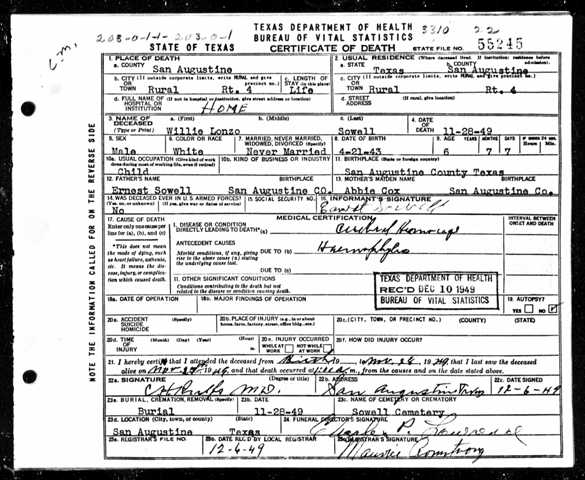 TEXAS DEPARTMENT OF HEALTH
BUREAU OF VITAL STATISTICS
3310 22
203-0-1-1- 203-0-1
STATE OF TEXAS
CERTIFICATE OF DEATH
STATE FILE NO. 55245
NOTE THE INFORMATION CALLED FOR ON THE REVERSE SIDE
1. PLACE OF DEATH
a. COUNTY San Augustine
2. USUAL RESIDENCE (Where deceased lived. If institution: residence before admission)
a. STATE Texas b. COUNTY San Augustine
b. CITY (If outside corporate limits, write RURAL and give precinct no.) OR TOWN Rural Rt. 4
c. LENGTH OF STAY (in this place) Life
c. CITY (If outside corporate limits, write RURAL and give precinct no.) OR TOWN Rural Rt. 4
d. FULL NAME OF (If not in hospital or institution, give street address or location) HOSPITAL OR INSTITUTION HOME
d. STREET ADDRESS (If rural, give location)
3. NAME OF DECEASED (Type or Print) a. (First) Willie Lonzo b. (Middle) c. (Last) Sowell
4. DATE OF DEATH 11-28-49
5. SEX Male
6. COLOR OR RACE White
7. MARRIED, NEVER MARRIED, WIDOWED, DIVORCED (Specify) Never Married
8. DATE OF BIRTH 4-21-43
9. AGE YEARS 6 MONTHS 7 DAYS 7 Hours Min.
10a. USUAL OCCUPATION (Give kind of work done during most of working life, even if retired) Child
10b. KIND OF BUSINESS OR INDUSTRY
11. BIRTHPLACE (State or foreign country) San Augustine County Texas
12. FATHER'S NAME BIRTHPLACE Ernest Sowell San Augustine CO.
13. MOTHER'S MAIDEN NAME BIRTHPLACE Abbie Cox San Augustine Co.
14. WAS DECEASED EVER IN U.S. ARMED FORCES? (Yes, no, or unknown) (If yes, give war or dates of service) No
15. SOCIAL SECURITY NO.
16. INFORMANT'S SIGNATURE
17. CAUSE OF DEATH
Enter only one cause per line for (a), (b), and (c)
*This does not mean the mode of dying, such as heart failure, asthenia, etc. It means the disease, injury, or complication which caused death.
MEDICAL CERTIFICATION
INTERVAL BETWEEN ONSET AND DEATH
I. DISEASE OR CONDITION DIRECTLY LEADING TO DEATH*(a)
ANTECEDENT CAUSES
Morbid conditions, if any, giving rise to the above cause (a) stating the underlying cause last.
DUE TO (b)
DUE TO (c)
II. OTHER SIGNIFICANT CONDITIONS
Conditions contributing to the death but not related to the disease or condition causing death.
TEXAS DEPARTMENT OF HEALTH
REC'D DEC 10 1949
BUREAU OF VITAL STATISTICS
18a. DATE OF OPERATION
18b. MAJOR FINDINGS OF OPERATION
19. AUTOPSY?
YES NO
20a. ACCIDENT SUICIDE HOMICIDE (Specify)
20b. PLACE OF INJURY (e.g., in or about home, farm, factory, street, office bldg., etc.)
20c. (CITY, TOWN, OR PRECINCT NO.) (COUNTY) (STATE)
20d. TIME OF INJURY (Month) (Day) (Year) (Hour)
20e. INJURY OCCURRED WHILE AT WORK NOT WHILE AT WORK
20f. HOW DID INJURY OCCUR?
21. I hereby certify that I attended the deceased from Birth 19 , to Nov 28 1949, that I last saw the deceased
alive on Nov 1949, and that death occurred at m., from the causes and on the date stated above.
22a. SIGNATURE (Degree or title) M.D.
22b. ADDRESS San Augustine Texas
22c. DATE SIGNED 12-6-49
23a. BURIAL, CREMATION, REMOVAL (Specify) Burial
23b. DATE 11-28-49
23c. NAME OF CEMETERY OR CREMATORY Sowell Cemetery
23d. LOCATION (City, town, or county) (State) San Augustine Texas
24. FUNERAL DIRECTOR'S SIGNATURE Charles P.
25a. REGISTRAR'S FILE NO.
25b. DATE REC'D BY LOCAL REGISTRAR 12-6-49
25c. REGISTRAR'S SIGNATURE Armstrong